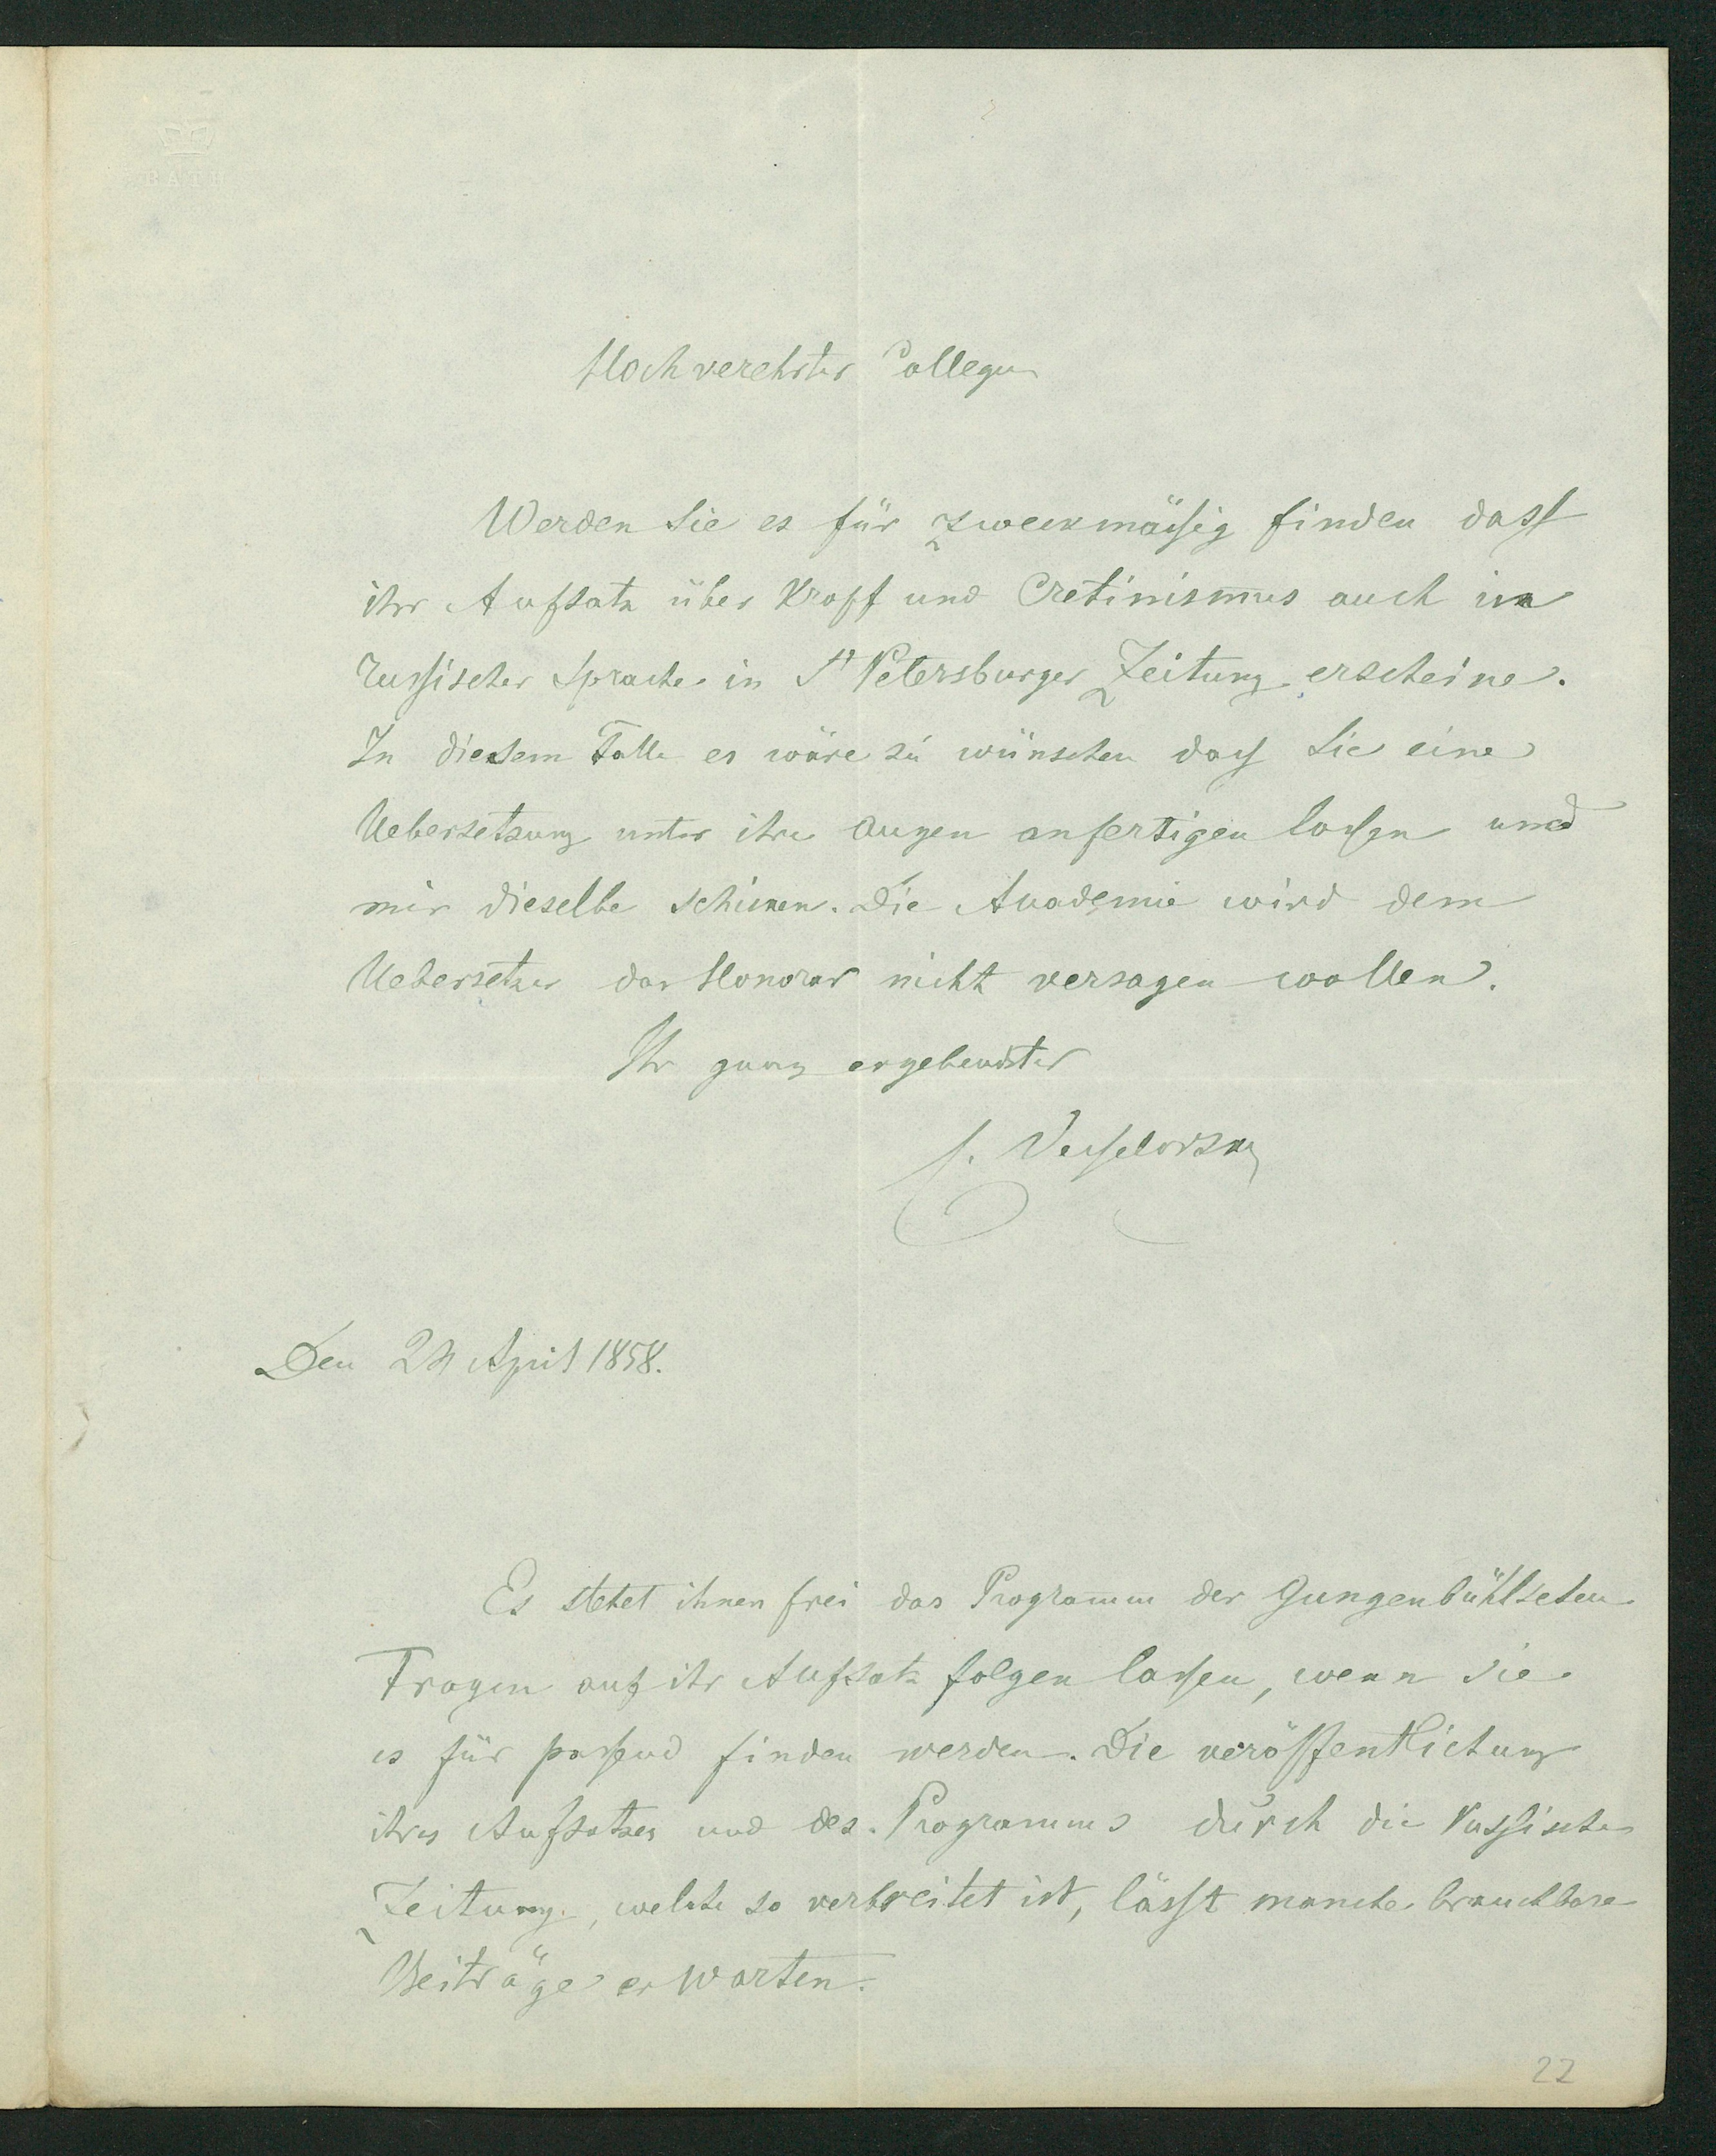 BATH
Hochverehrter College
Werden Sie es für zweckmäßig finden dass
ihr Aufsatz über Kropf und Cretinismus auch in
russischer Sprache in St Petersburger Zeitung erscheine.
In diesem Falle es wäre zu wünschen dass Sie eine
Uebersetzung unter ihre Augen anfertigen lassen und
mir dieselbe schicken. Die Academie wird dem
Uebersetzer das Honorar nicht versagen wollen.
Ihr ganz ergebendster
Wesselovsky
Den 24 April 1858.
Es stehet ihnen frei das Programm der Gungenbühlschen
Fragen auf ihr Aufsatz folgen lassen, wenn sie
es für passend finden werden. Die veröffentlichung
ihres Aufsatzes und des Programms durch die Russische
Zeitung, welche so verbreitet ist, lässt manche brauchbare
Beiträge erwarten.
22